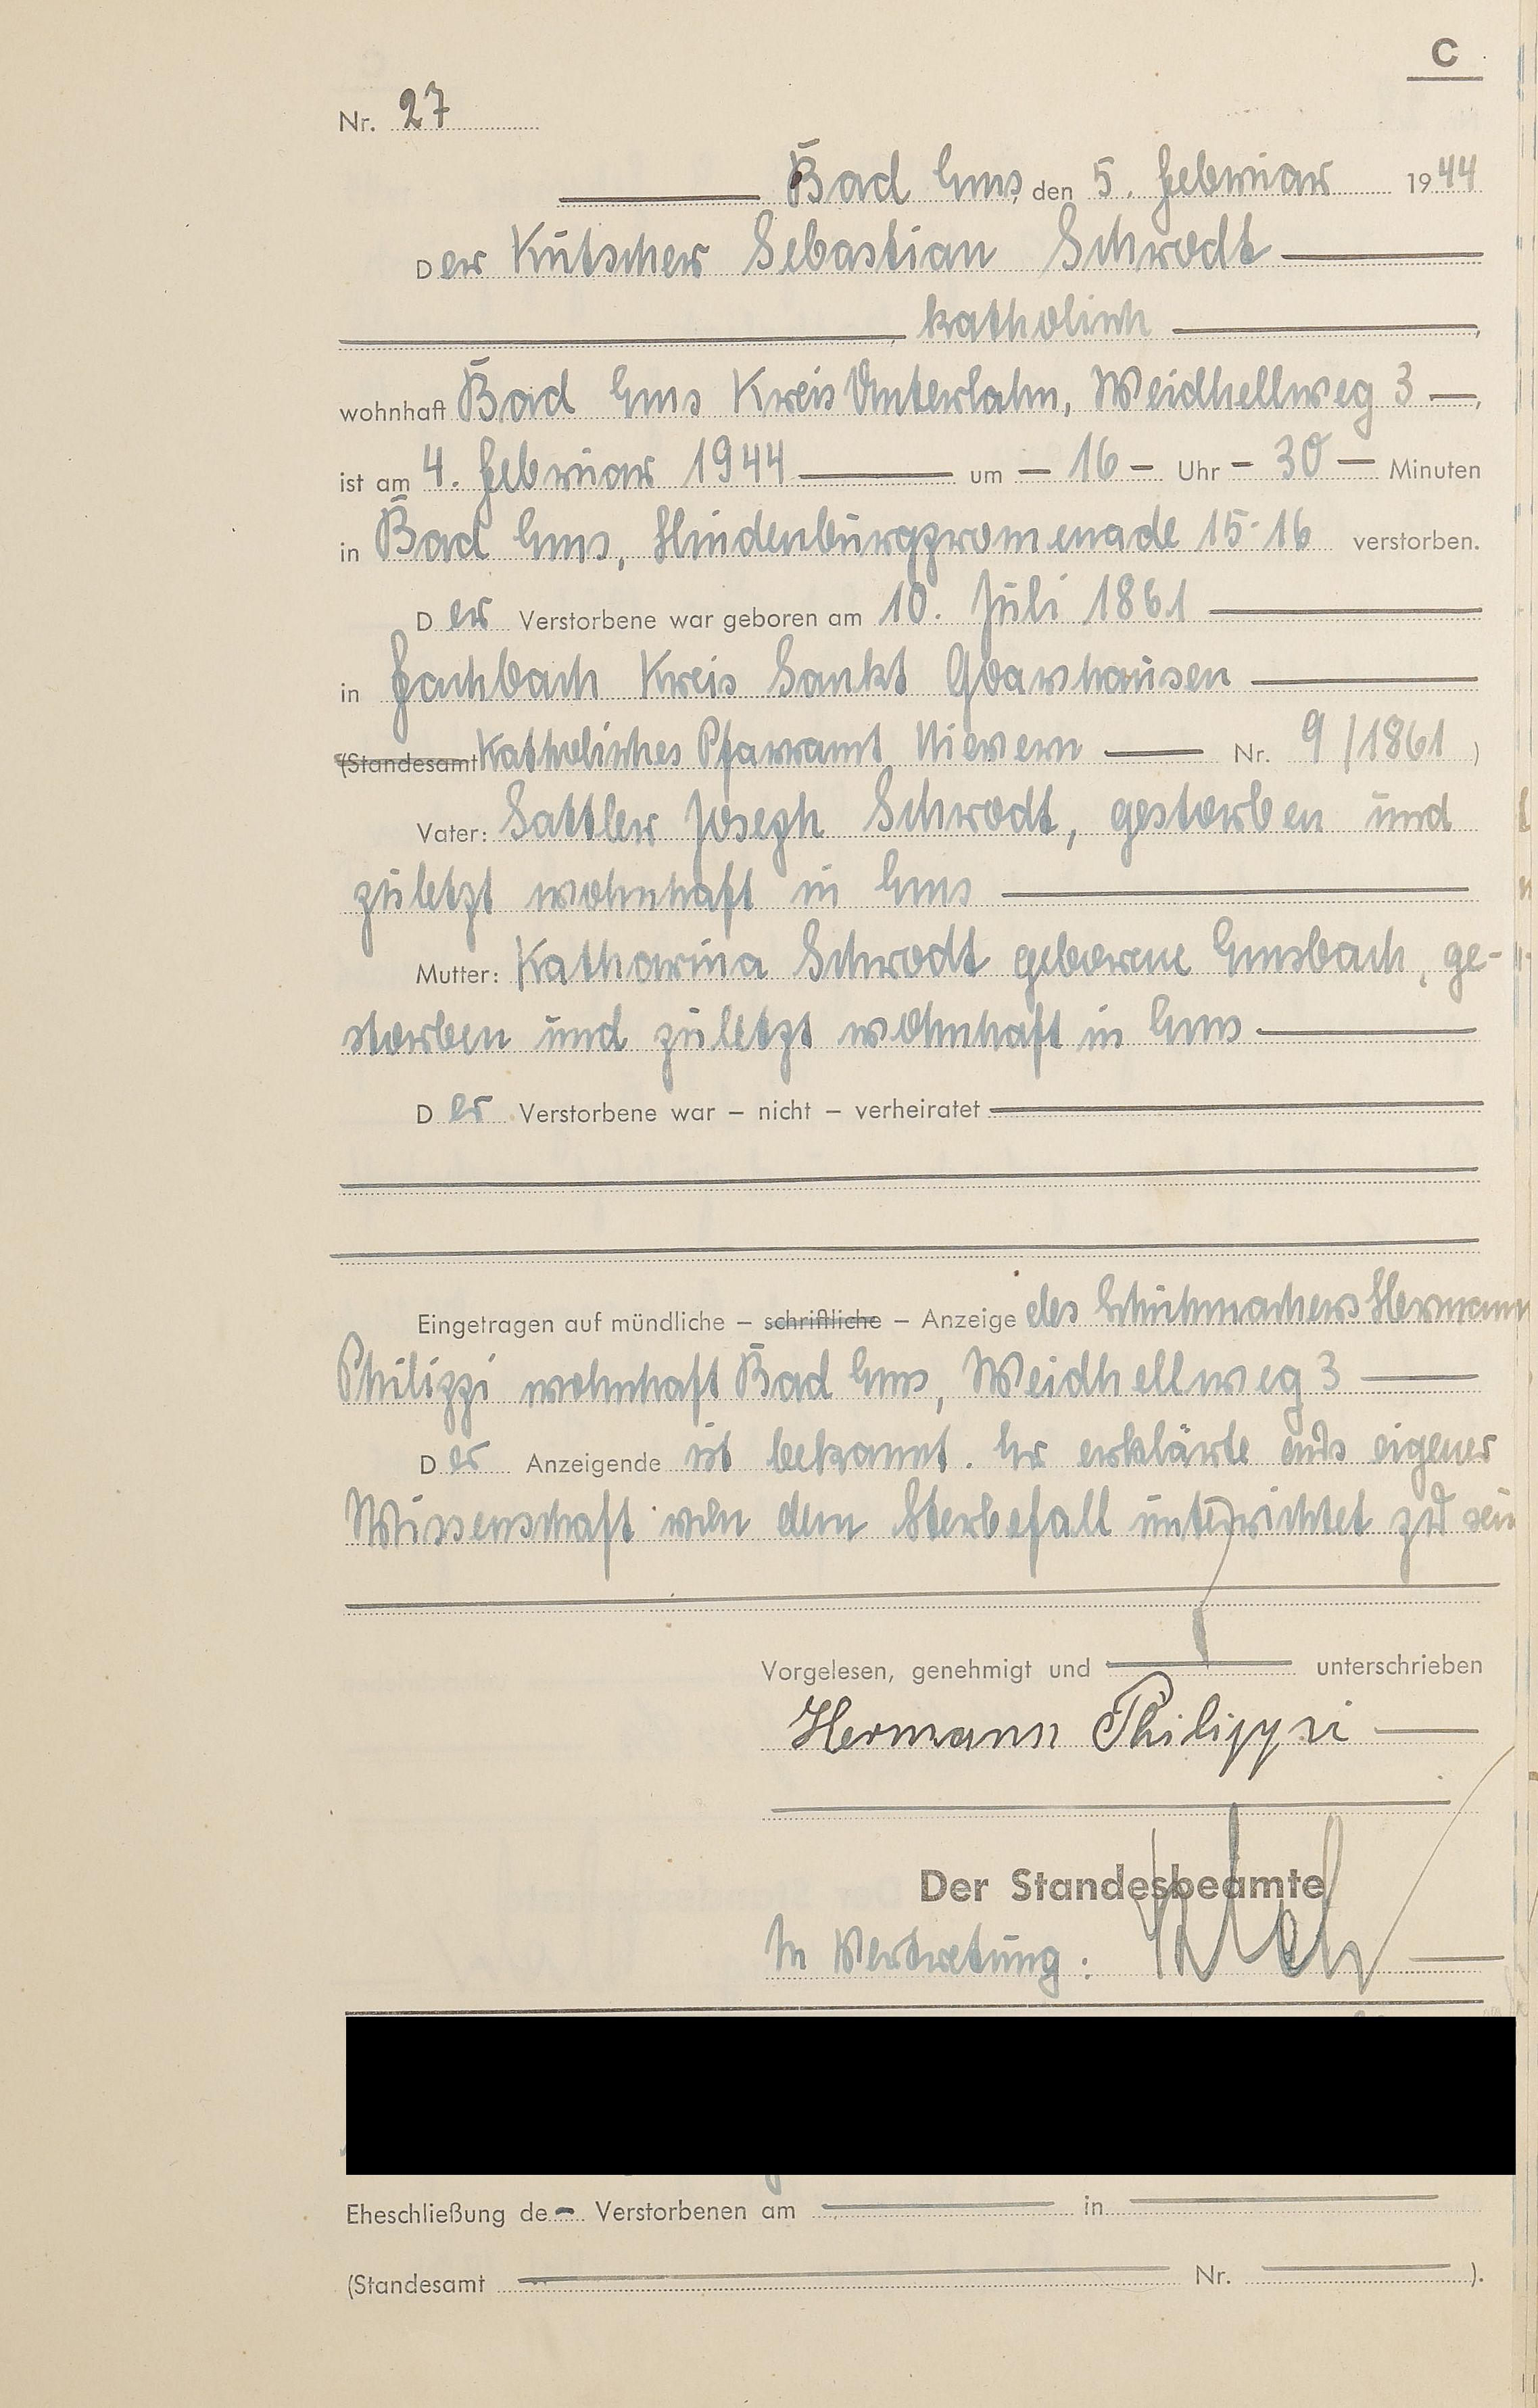 C
Nr. 27
Bad Ems, den 5. Februar 1944
Der Kutscher Sebastian Schrodt
, katholisch ,
wohnhaft Bad Ems Kreis Unterlahn, Weidhellweg 3 ,
ist am 4. Februar 1944 um - 16 - Uhr - 30 - Minuten
in Bad Ems, Hindenburgpromenade 15-16 verstorben.
Der Verstorbene war geboren am 10. Juli 1861
in Fachbach Kreis Sankt Goarshausen
(Standesamt Katholisches Pfarramt Nievern Nr. 9/1861 )
Vater: Sattler Joseph Schrodt, gestorben und
zuletzt wohnhaft in Ems
Mutter: Katharina Schrodt geborene Emsbach, ge-
storben und zuletzt wohnhaft in Ems
Der Verstorbene war – nicht – verheiratet
Eingetragen auf mündliche – schriftliche – Anzeige des Schuhmachers Hermann
Philippi wohnhaft Bad Ems, Weidhellweg 3
Der Anzeigende ist bekannt. Er erklärte aus eigener
Wissenschaft von dem Sterbefall unterrichtet zu sein
Vorgelesen, genehmigt und unterschrieben
Hermann Philippi
Der Standesbeamte
In Vertretung:
Eheschließung de- Verstorbenen am in
(Standesamt Nr. ).